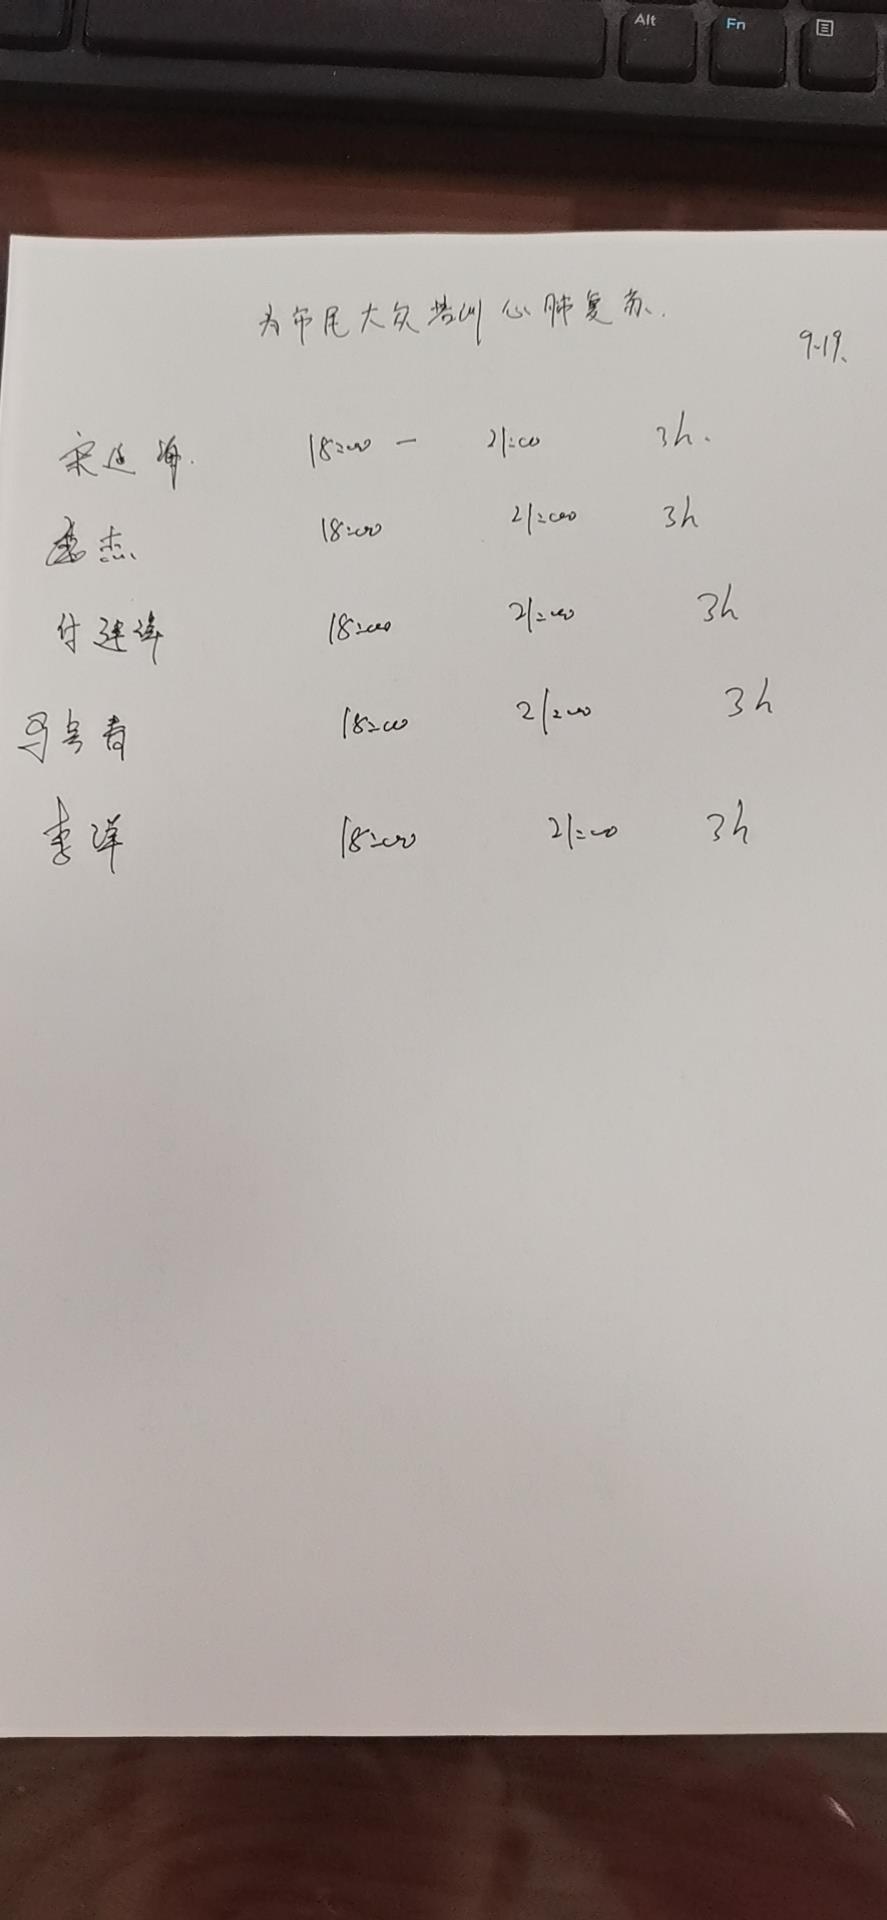 Alt Fn
为市民大众培训心肺复苏.
9.19.
宋延海. 18:00 — 21:00 3h.
李杰. 18:00 21:00 3h
付建伟 18:00 21:00 3h
马 青 18:00 21:00 3h
李洋 18:00 21:00 3h